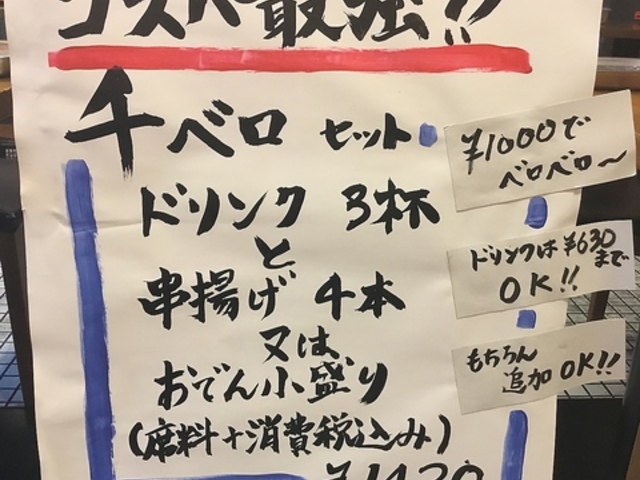 コスパ最強!!
千ベロ セット
ドリンク 3杯
と
串揚げ 4本
又は
おでん小盛り
(席料+消費税込み)
¥1000で
ベロベロ〜
ドリンクは¥630
まで
OK!!
もちろん
追加OK!!